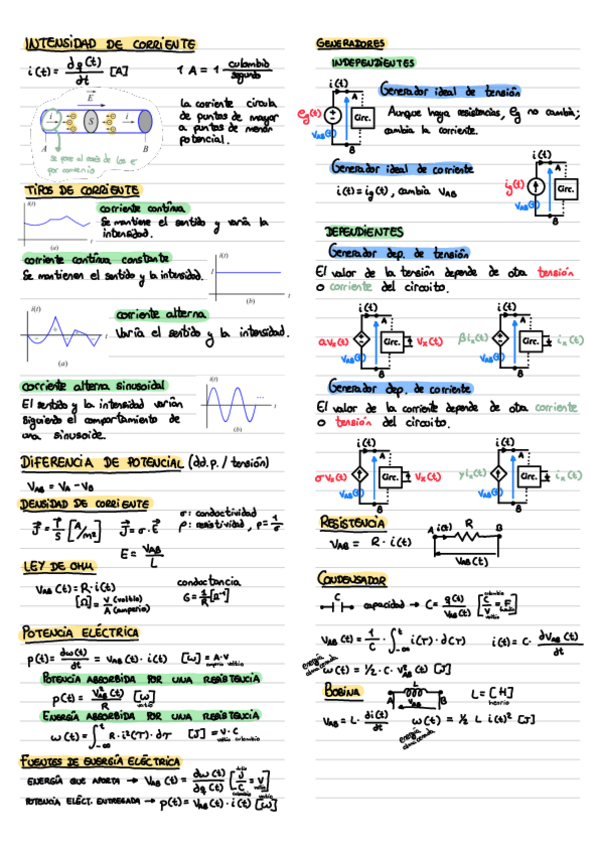 INTENSIDAD DE CORRIENTE
i(t) = dq(t)/dt [A] 1 A = 1 culombio/segundo
E
i S i
A B
La corriente circula
de puntos de mayor
a puntos de menor
potencial.
se pone al revés de los e-
por convenio
TIPOS DE CORRIENTE
i(t)
t
(a)
corriente continua
Se mantiene el sentido y varía la
intensidad.
corriente continua constante
Se mantienen el sentido y la intensidad.
i(t)
t
(b)
i(t)
t
(a)
corriente alterna
Varía el sentido y la intensidad.
corriente alterna sinusoidal
El sentido y la intensidad varían
siguiendo el comportamiento de
una sinusoide.
i(t)
t
(b)
DIFERENCIA DE POTENCIAL (d.d.p. / tensión)
VAB = VA - VB
DENSIDAD DE CORRIENTE
J = I/S [A/m²] J = σ·E
σ: conductividad
ρ: resistividad, ρ = 1/σ
E = VAB/L
LEY DE OHM
VAB(t) = R·i(t)
[Ω] = V (voltio)/A (amperio)
conductancia
G = 1/R [Ω⁻¹]
POTENCIA ELÉCTRICA
p(t) = dw(t)/dt = VAB(t)·i(t) [W] = A·V
amperio voltio
POTENCIA ABSORBIDA POR UNA RESISTENCIA
p(t) = V²AB(t)/R [W]
vatio
ENERGÍA ABSORBIDA POR UNA RESISTENCIA
w(t) = ∫-∞^t R·i²(τ)·dτ [J] = V·C
voltio culombio
FUENTES DE ENERGÍA ELÉCTRICA
ENERGÍA QUE APORTA → VAB(t) = dw(t)/dq(t) [J/C = V]
POTENCIA ELÉCT. ENTREGADA → p(t) = VAB(t)·i(t) [W]
GENERADORES
INDEPENDIENTES
i(t)
A
eg(t)
VAB(t)
Circ.
B
Generador ideal de tensión
Aunque haya resistencias, eg no cambia;
cambia la corriente.
Generador ideal de corriente
i(t) = ig(t), cambia VAB
i(t)
A
ig(t)
VAB(t)
Circ.
B
DEPENDIENTES
Generador dep. de tensión
El valor de la tensión depende de otra tensión
o corriente del circuito.
i(t) i(t)
A A
αVx(t) Circ. Vx(t) βix(t) Circ. ix(t)
VAB(t) VAB(t)
B B
Generador dep. de corriente
El valor de la corriente depende de otra corriente
o tensión del circuito.
i(t) i(t)
A A
σVx(t) Circ. Vx(t) γix(t) Circ. ix(t)
VAB(t) VAB(t)
B B
RESISTENCIA
VAB = R·i(t)
A i(t) R B
VAB(t)
CONDENSADOR
C capacidad → C = q(t)/VAB(t) [C/V = F]
culombio
voltio
faradio
VAB(t) = 1/C · ∫-∞^t i(τ)·d(τ) i(t) = C· dVAB(t)/dt
energía
almacenada
w(t) = 1/2·C·V²AB(t) [J]
BOBINA
L
A VAB B
L = [H]
henrio
VAB = L· di(t)/dt w(t) = 1/2 L i(t)² [J]
energía
almacenada